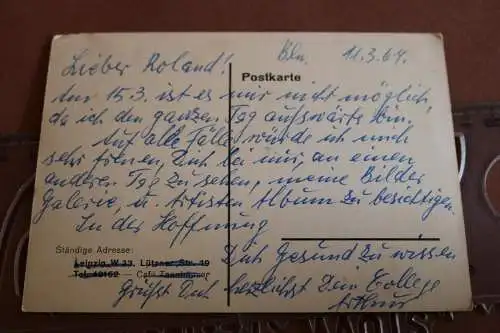 Bln. 11.3.64.
Lieber Roland!
Postkarte
Am 15.3. ist es mir nicht möglich,
da ich den ganzen Tag auswärts bin.
Auf alle Fälle würde ich mich
sehr freuen, Dich bei mir, an einen
anderen Tag zu sehen, meine Bilder
Galerie, u. Artisten Album zu besichtigen.
In der Hoffnung
Ständige Adresse:
Dich Gesund zu wissen
Leipzig W 33, Lützner Str. 19
Tel. 49162 — Café Tannhäuser
Grüßt Dich herzlichst Dein College
Arthur